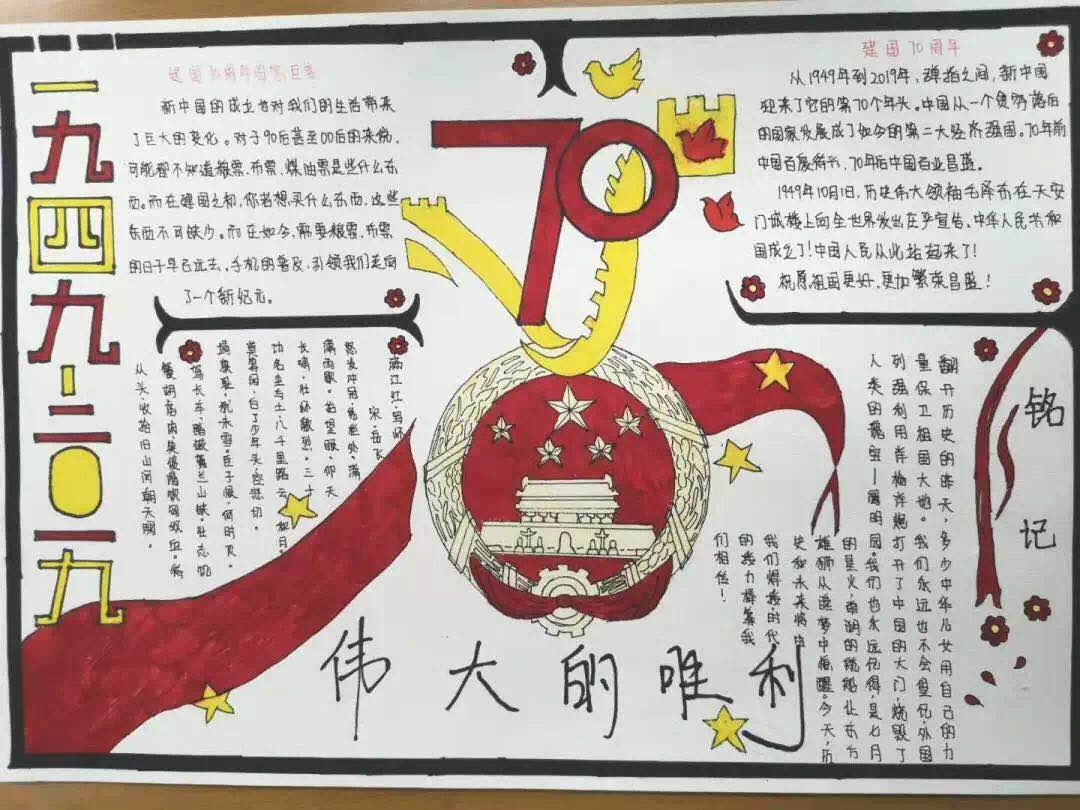 一九四九-二〇一九
建国70周年国富民
新中国的成立也对我们的生活带来
了巨大的变化。对于90后甚至00后的来说,
可能都不知道粮票、布票、煤油票是些什么东
西。而在建国之初,你若想买什么东西,这些
东西不可缺少。而在如今,需要粮票、布票
的日子早已远去。手机的普及,引领我们走向
了一个新纪元。
70
建国70周年
从1949年到2019年,弹指之间,新中国
迎来了它的第70个年头。中国从一个贫穷落后
的国家发展成了如今的第二大经济强国。70年前
中国百废待兴,70年后中国百业昌盛。
1949年10月1日,历史伟大领袖毛泽东在天安
门城楼上向全世界发出庄严宣告,中华人民共和
国成立了!中国人民从此站起来了!
祝愿祖国更好,更加繁荣昌盛!
满江红·写怀
宋·岳飞
怒发冲冠,凭栏处,潇
潇雨歇。抬望眼,仰天
长啸,壮怀激烈。三十
功名尘与土,八千里路云和月。
莫等闲,白了少年头,空悲切。
靖康耻,犹未雪。臣子恨,何时灭。
驾长车,踏破贺兰山缺。壮志饥
餐胡虏肉,笑谈渴饮匈奴血。待
从头,收拾旧山河,朝天阙。
铭记
翻开历史的昨天,多少中华儿女用自己的力
量保卫祖国大地。我们永远也不会忘记,外国
列强利用洋枪洋炮打开了中国的大门,烧毁了
人类的瑰宝—圆明园。我们也永远记得,是七月
的星火,南湖的航船让东方
雄狮从噩梦中梅醒。今天,历
史和未来将由
我们焊接,时代
的接力棒等我
们相信!
伟大的唯利